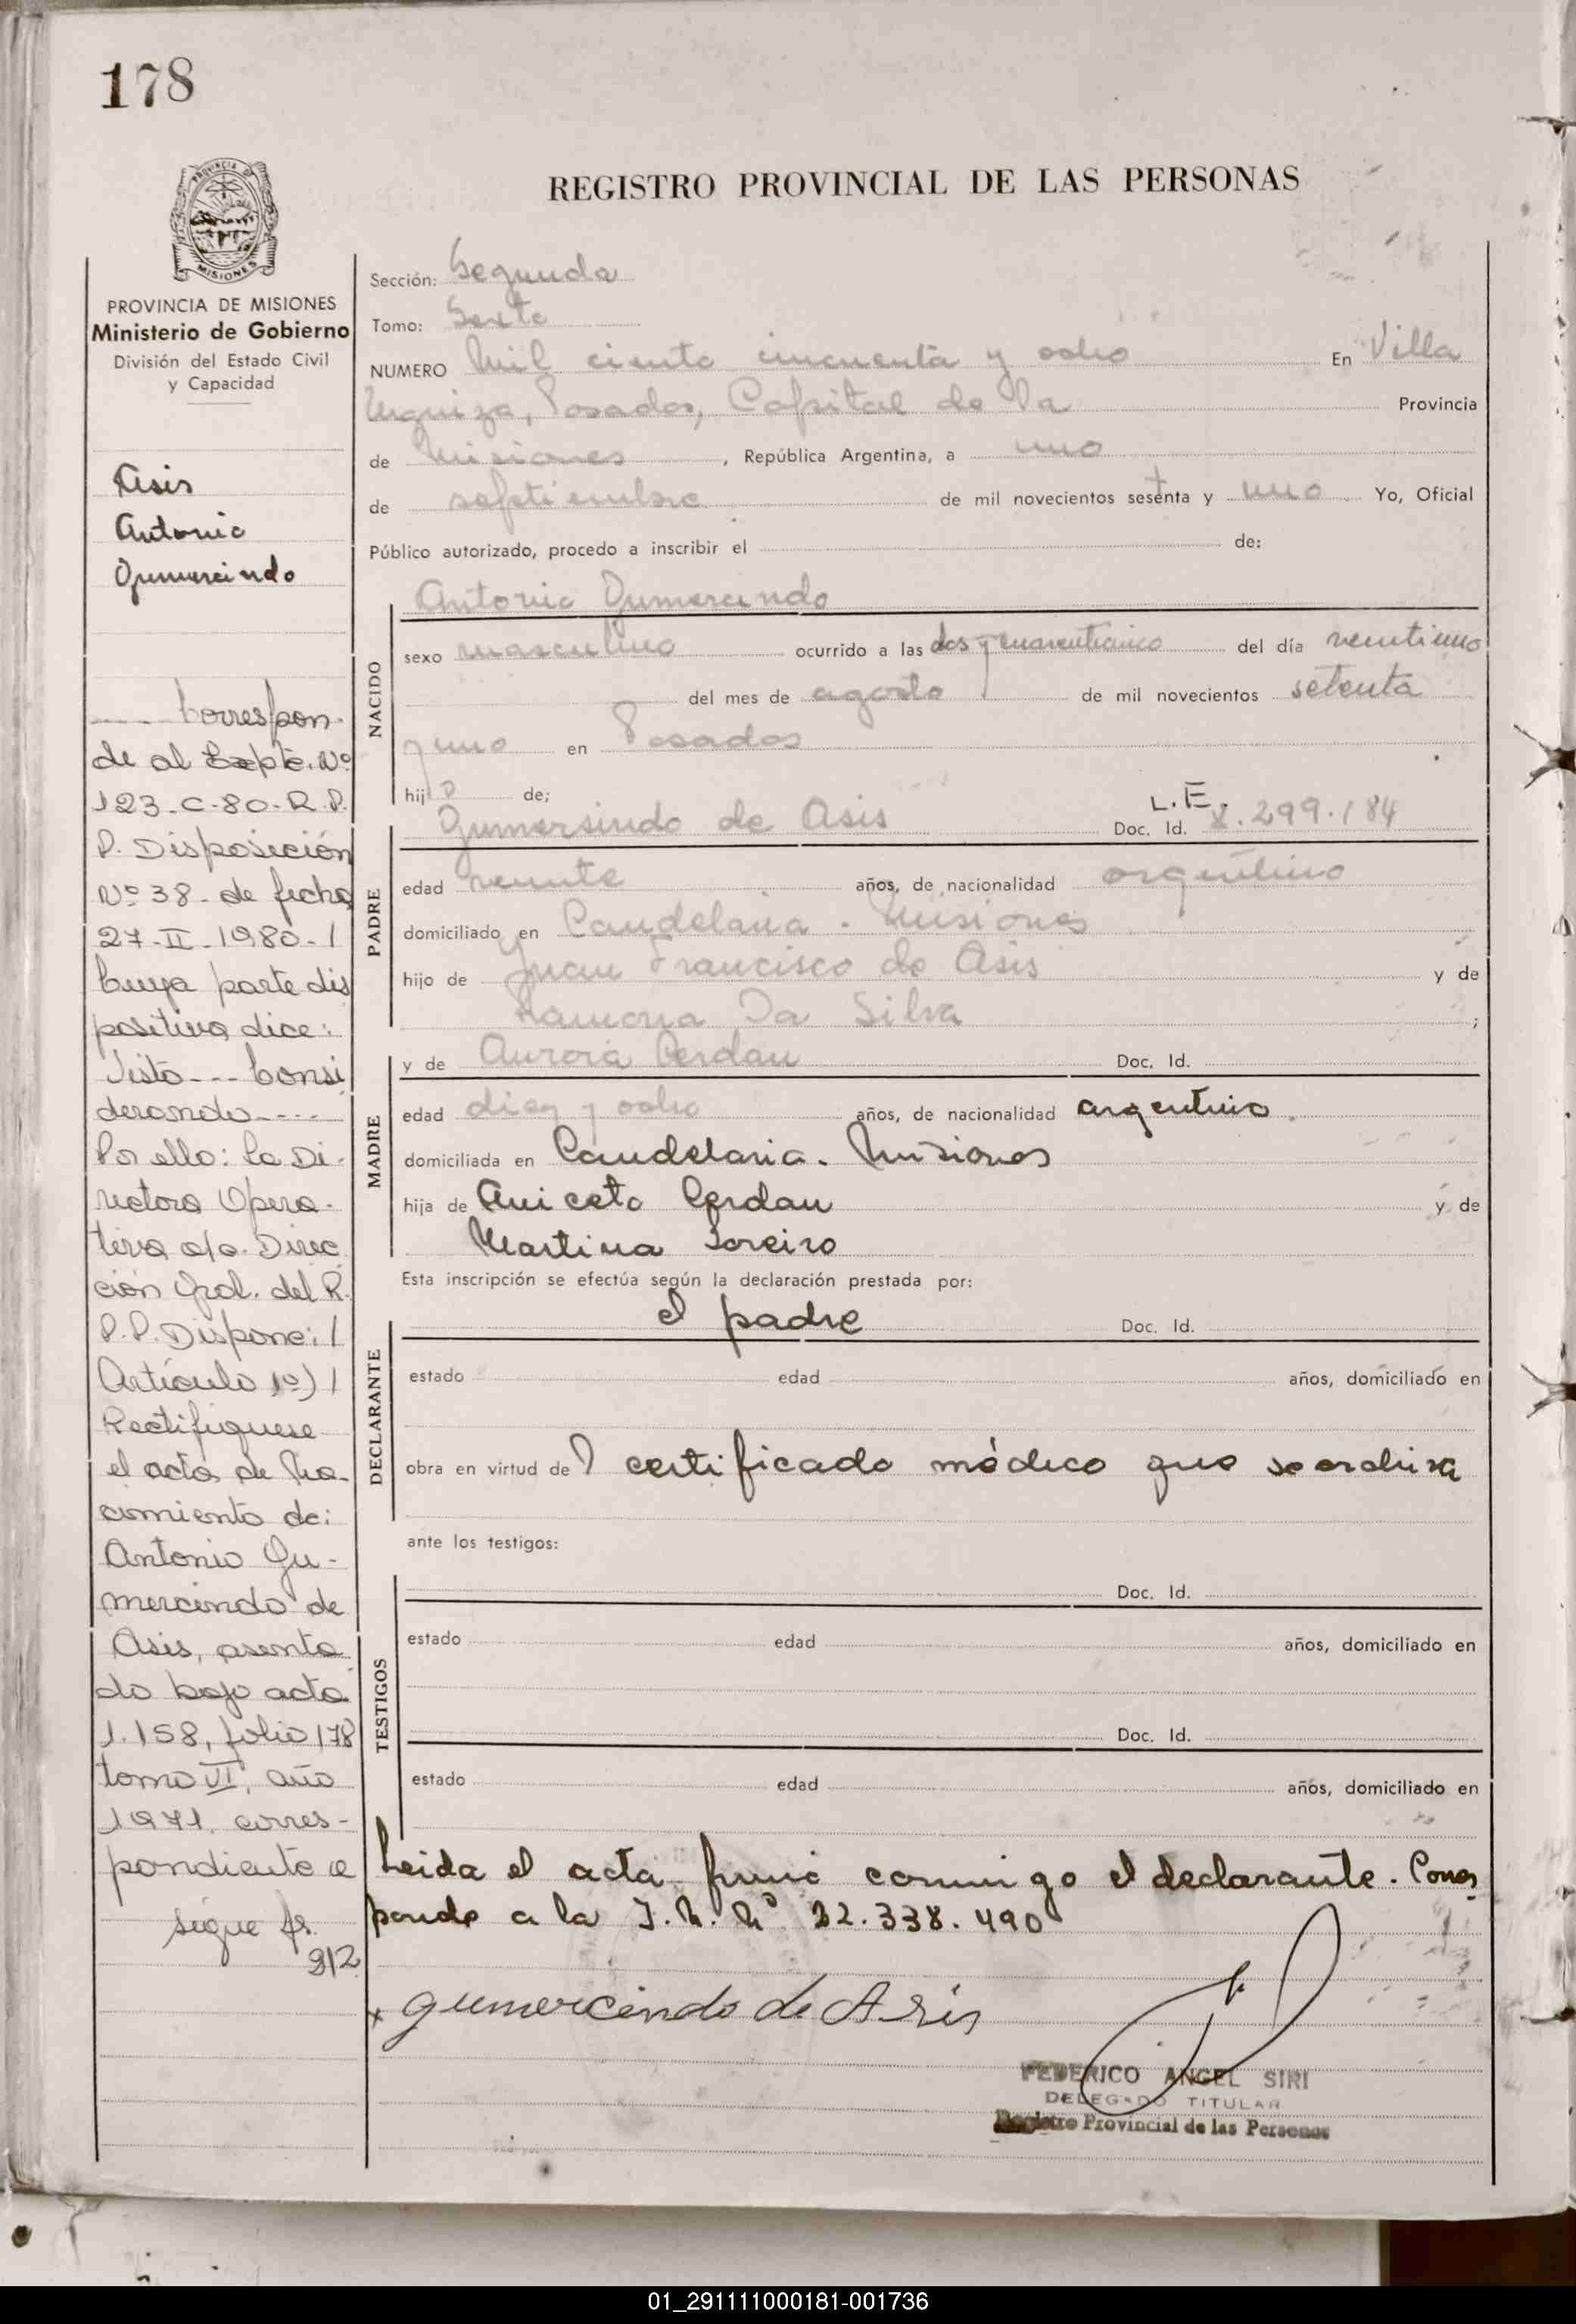 178
REGISTRO PROVINCIAL DE LAS PERSONAS
PROVINCIA DE MISIONES
Ministerio de Gobierno
División del Estado Civil
y Capacidad
Asis
Antonio
Gumercindo
---- Correspon-
de al Expte. Nº
123-C-80-R.P.
P. Disposición
Nº 38- de fecha
27-II-1980-/
Cuya parte dis
positiva dice:
Visto--- Consi
derando----
Por ello: La Di-
rectora Opera-
tiva a/c. Direc
ción Gral. del R.
P.P. Dispone: /
Artículo 1º) /
Rectifíquese
el acta de Na-
cimiento de:
Antonio Gu-
mercindo de
Asis, asenta
do bajo acta
1.158, folio 178
tomo VI, año
1971, corres-
pondiente a
sigue fs.
312
MISIONES
Sección: Segunda
Tomo: Sexto
NUMERO Mil ciento cincuenta y ocho En Villa
Urquiza, Posadas, Capital de la Provincia
de Misiones , República Argentina, a uno
de septiembre de mil novecientos setenta y uno Yo, Oficial
Público autorizado, procedo a inscribir el de:
Antonio Gumercindo
NACIDO
sexo masculino ocurrido a las dos y cuarenticinco del día veintiuno
del mes de agosto de mil novecientos setenta
y uno en Posadas
hijo de;
Gumersindo de Asis L.E. Doc. Id. 8.299.184
PADRE
edad veinte años, de nacionalidad argentino
domiciliado en Candelaria - Misiones
hijo de Juan Francisco de Asis y de
Ramona Da Silva ;
y de Aurora Cerdan Doc. Id.
MADRE
edad diez y ocho años, de nacionalidad argentina.
domiciliada en Candelaria. Misiones
hija de Aniceto Cerdan y de
Martina Loreiro
Esta inscripción se efectúa según la declaración prestada por:
el padre Doc. Id.
DECLARANTE
estado edad años, domiciliado en
obra en virtud del certificado médico que se archiva
ante los testigos:
Doc. Id.
TESTIGOS
estado edad años, domiciliado en
Doc. Id.
estado edad años, domiciliado en
Leida el acta firmó conmigo el declarante. Corres
ponde a la I.N. Nº 22.338.490
x gumercindo de Asis
FEDERICO ANGEL SIRI
DELEGADO TITULAR
Registro Provincial de las Personas
01_291111000181-001736